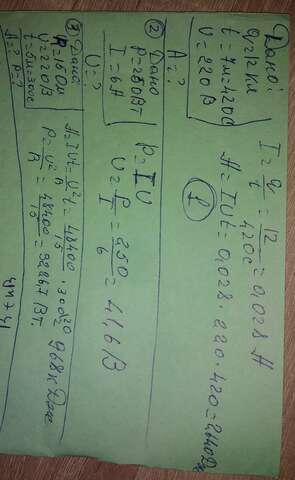 Дано:
q=12 Кл
t=7м=420с
U=220В
A=?
I=q/t=12/420с=0,028 А
A=IUt=0,028·220·420=2640Дж
①
② Дано
P=250Вт
I=6А
U=?
P=IU
U=P/I=250/6=41,6В
③ Дано
R=15Ом
U=220В
t=5м=300с
A=? P=?
A=IUt=U²/R t=48400/15·300=968кДж
P=U²/R=48400/15=3226,7 Вт.